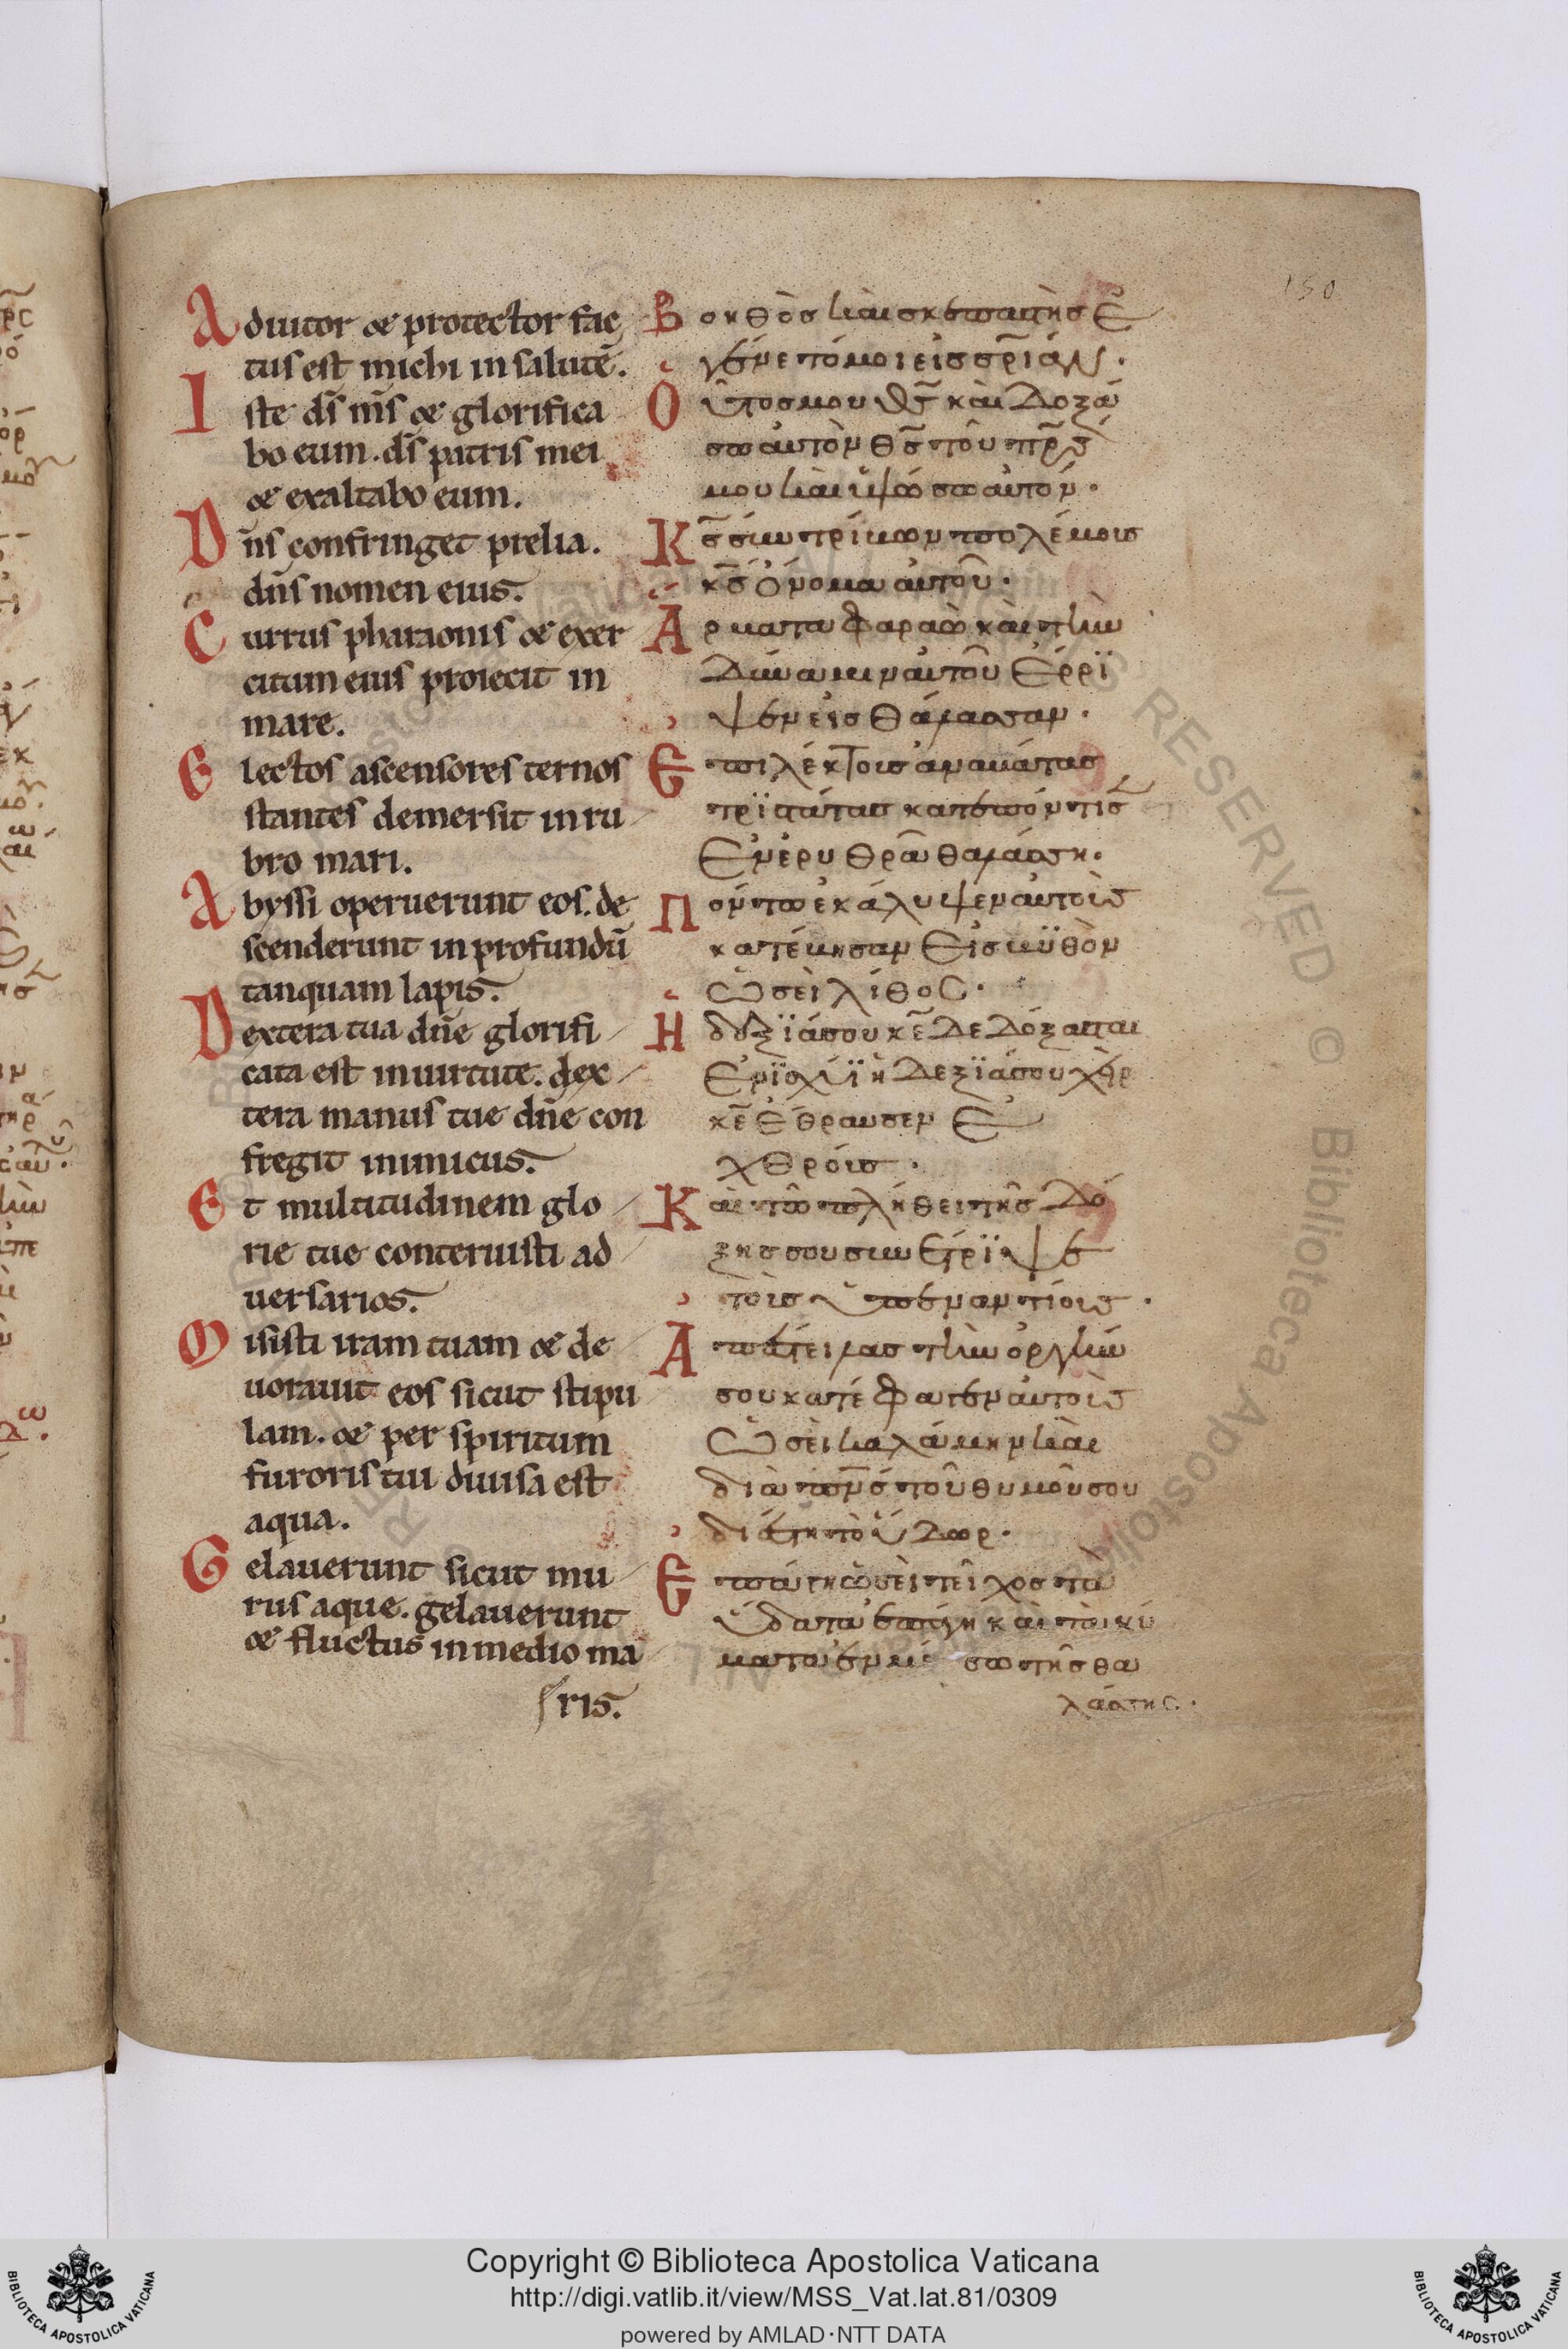 150
Adiutor & protector fac
tus est michi in salutē.
Iste dс̄ m̄s & glorifica
bo eum. dс̄ patris mei
& exaltabo eum.
Dn̄s confringet prelia.
dn̄s nomen eius.
Currus pharaonis & exer
citum eius proiecit in
mare.
Electos ascensores ternos
stantes demersit in ru
bro mari.
Abyssi operuerunt eos. de
scenderunt in profundū
tanquam lapis.
Dextera tua dn̄e glorifi
cata est in uirtute. dex
tera manus tue dn̄e con
fregit inimicus.
Et multitudinem glo
rie tue conteruisti ad
uersarios.
Misisti iram tuam & de
uorauit eos sicut stipu
lam. & per spiritum
furoris tui diuisa est
aqua.
Gelauerunt sicut mu
rus aque. gelauerunt
& fluctus in medio ma
ris.
Βοηθὸσ καὶ σκεπαστὴσ ἐ
γένετό μοι εἰσ σρ̄ίαν.
Ὁυτοσ μου θσ̄ καὶ δοξά
σω αυτὸν θσ̄ τοῦ πρ̄σ
μου καὶ ὑψώσω αυτόν.
Κσ̄ συντρίβων πολέμουσ
κσ̄ ὄνομα αυτοῦ.
Ἅρματα φαραὼ καὶ τὴν
δύναμιν αυτοῦ ἔρρϊ
ψεν εἰσ θάλασσαν.
Επιλέκτουσ αναβάτασ
τρϊστάτασ κατεπόντισ
εν ερυθρᾶ θαλάσση.
Πόντω εκάλυψεν αυτοὺσ
κατέβησαν εἰσ βϋθὸν
ὡσεὶ λίθοσ.
Ἡ δεξϊάσου κε̄ δεδόξασται
εν ϊσχύϊ ἡ δεξϊάσου χὴρ
κε̄ ἔθραυσεν ε
χθρόυσ.
Καὶ τῶ πλήθει τῆσ δό
ξησ σου συνέτρϊψε
τοὺσ ὑπεναντίουσ.
Ἀπέστειλασ τὴν ὀργήν
σου κατέφαγεν αυτοὺσ
ὡσεὶ καλάμην καὶ
διὰ πν̄σ τοῦ θυμοῦ σου
διέστη τὸ ὕδωρ.
Επάγη ὡσεὶ τεῖχοσ τὰ
ὕδατα επάγη καὶ τὰ κύ
ματα εν μέσω τῆσ θα
λάσσησ.
Copyright © Biblioteca Apostolica Vaticana
http://digi.vatlib.it/view/MSS_Vat.lat.81/0309
powered by AMLAD·NTT DATA